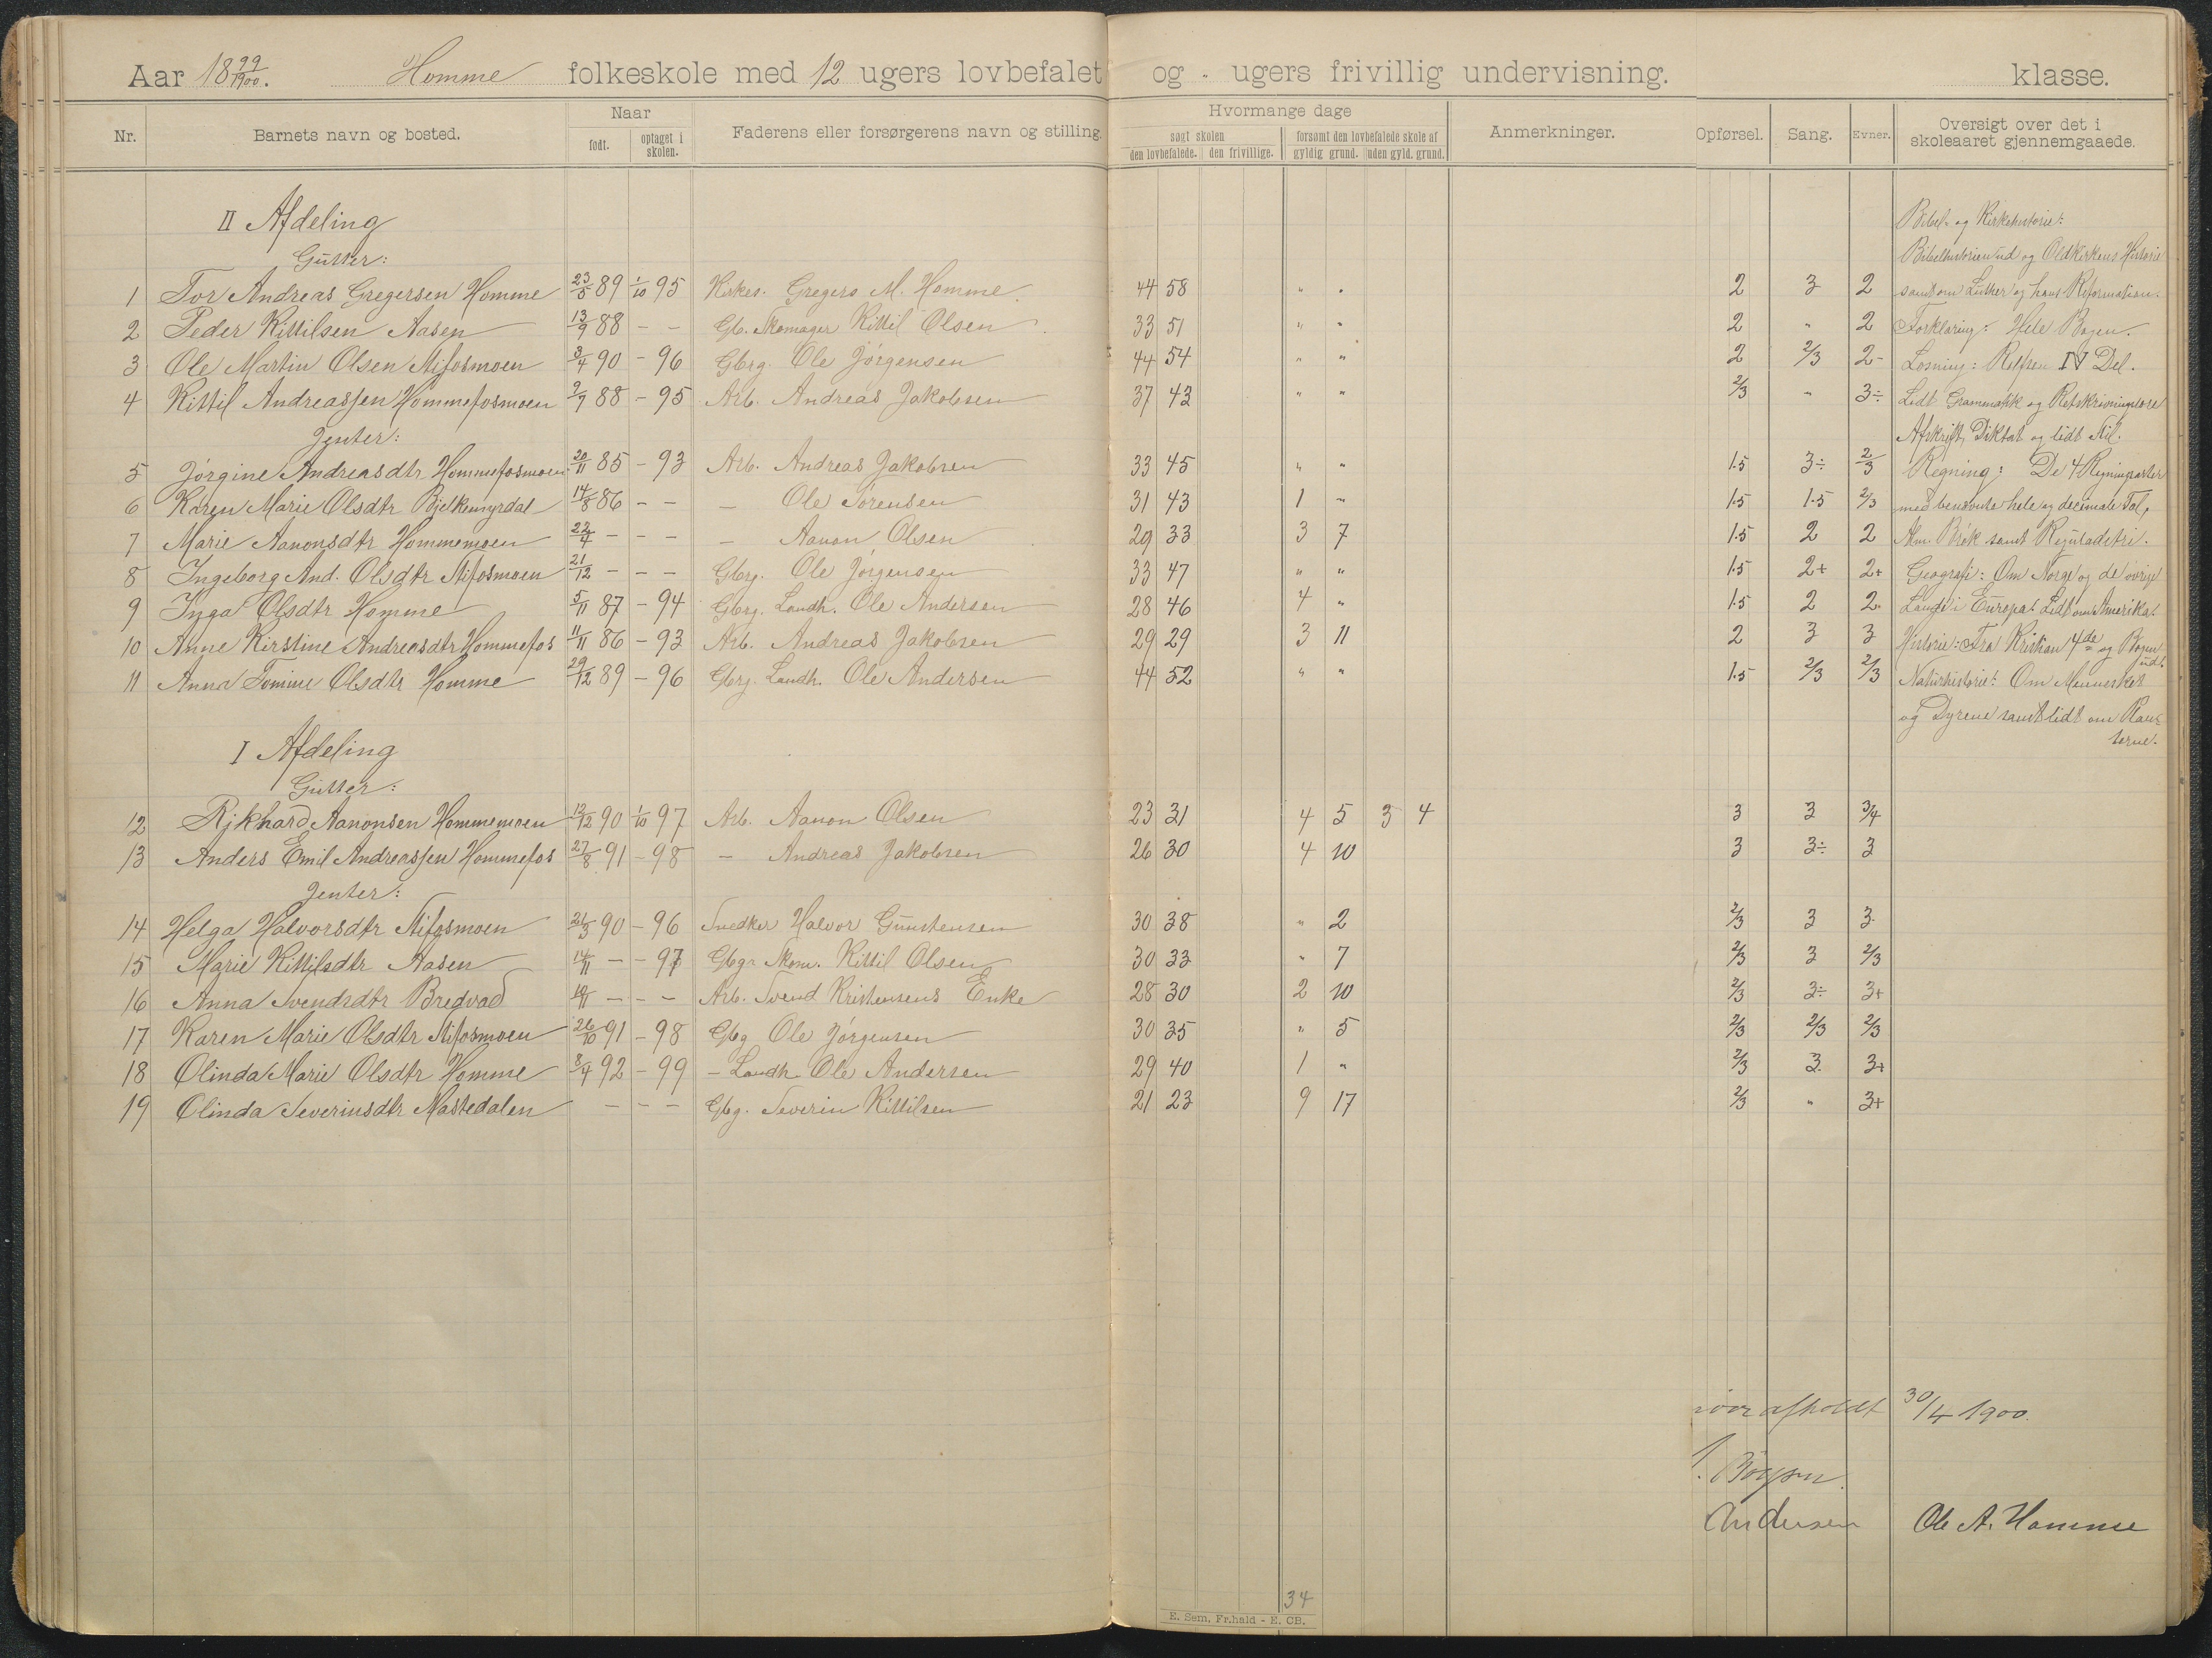 Aar 18 99/1900. Homme folkeskole med 12 ugers lovbefalet og " ugers frivillig undervisning. klasse.
Nr. Barnets navn og bosted. Naar født. optaget i skolen. Faderens eller forsørgerens navn og stilling. Hvormange dage søgt skolen den lovbefalede. den frivillige. forsømt den lovbefalede skole af gyldig grund. uden gyld. grund. Anmerkninger. Opførsel. Sang. Evner. Oversigt over det i skoleaaret gjennemgaaede.
II Afdeling
Bibel- og Kirkehistorie:
Gutter:
Bibelhistorien ud og Oldkirkens Historie
1 Tor Andreas Gregersen Homme 23/5 89 1/10 95 Kirkes. Gregers M. Homme. 44 58 " " 2 3 2 samt om Luther og hans Reformation.
2 Peder Kittilsen Aasen 13/9 88 - - Gb. Skomager Kittil Olsen 33 51 " " 2 " 2 Forklaring: Hele Bogen.
3 Ole Martin Olsen Stifosmoen 3/4 90 - 96 Gbrg. Ole Jørgensen 44 54 " " 2 2/3 2- Læsning: IV Del.
4 Kittil Andreassen Hommefosmoen 2/7 88 - 95 Arb. Andreas Jakobsen 37 43 " " 2/3 " 3÷ Lidt Grammatikk og Retskrivningslære
Jenter:
Afskrift, Diktat og lidt Stil.
5 Jørgine Andreasdtr Hommefosmoen 20/11 85 - 93 Arb. Andreas Jakobsen 33 45 " " 1.5 3÷ 2/3 Regning: De 4 Regningsarter
6 Karen Marie Olsdtr Bjelkemyrdal 14/8 86 - - - Ole Sørensen 31 43 1 " 1.5 1.5 2/3 med benævnte hele og decimale Tal,
7 Marie Aanonsdtr Hommemoen 22/4 - - - - Aanon Olsen 29 33 3 7 1.5 2 2 Alm. Brøk samt Reguladetri.
8 Ingeborg And. Olsdtr Stifosmoen 21/12 - - - Gbrg. Ole Jørgensen 33 47 " " 1.5 2+ 2+ Geografi: Om Norge og de øvrige
9 Inga Olsdtr Homme 5/11 87 - 94 Gbrg. Landh. Ole Andersen 28 46 4 " 1.5 2 2 Lande i Europa. Lidt om Amerika.
10 Anne Kirstine Andreasdtr Hommefos 11/11 86 - 93 Arb. Andreas Jakobsen 29 29 3 11 2 3 3 Historie: Fra Kristian 4de og Bogen ud.
11 Anna Tomine Olsdtr Homme 29/12 89 - 96 Gbrg. Landh. Ole Andersen 44 52 " " 1.5 2/3 2/3 Naturhistorie: Om Mennesket
og Dyrene samt lidt om Plan-
terne.
I Afdeling
Gutter:
12 Rikhard Aanonsen Hommemoen 12/12 90 1/10 97 Arb. Aanon Olsen 23 31 4 5 3 4 3 3 3/4
13 Anders Emil Andreassen Hommefos 27/8 91 - 98 - Andreas Jakobsen 26 30 4 10 3 3÷ 3
Jenter:
14 Helga Halvorsdtr Stifosmoen 21/3 90 - 96 Snedker Halvor Gunstensen 30 38 " 2 2/3 3 3
15 Marie Kittilsdtr Aasen 14/11 - - 97 Gbgr. Skom. Kittil Olsen 30 33 " 7 2/3 3 2/3
16 Anna Svendsdtr Bredvad - - - Arb. Svend Kristensens Enke 28 30 2 10 2/3 3÷ 3+
17 Karen Marie Olsdtr Stifosmoen 26/10 91 - 98 Gbg. Ole Jørgensen 30 35 " 5 2/3 2/3 2/3
18 Olinda Marie Olsdtr Homme 8/4 92 - 99 - Landh. Ole Andersen 29 40 1 " 2/3 3. 3+
19 Olinda Severinsdtr Mastedalen - - - Gbg. Severin Kittilsen 21 23 9 17 2/3 " 3+
afholdt 30/4 1900.
Andersen Ole A. Homme
34
E. Sem, Fr.hald - E. CB.